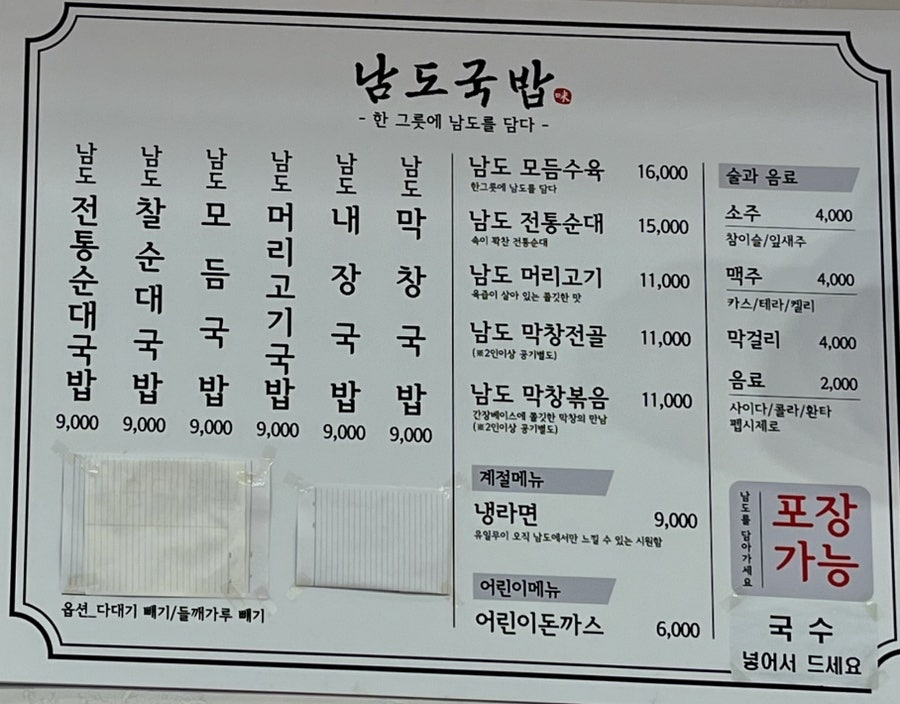 남도국밥 味
- 한 그릇에 남도를 담다 -
남도 전통순대국밥
9,000
남도 찰순대국밥
9,000
남도 모듬국밥
9,000
남도 머리고기국밥
9,000
남도 내장국밥
9,000
남도 막창국밥
9,000
옵션_다대기 빼기/들깨가루 빼기
남도 모듬수육 16,000
한그릇에 남도를 담다
남도 전통순대 15,000
속이 꽉찬 전통순대
남도 머리고기 11,000
육즙이 살아 있는 쫄깃한 맛
남도 막창전골 11,000
(※2인이상 공기별도)
남도 막창볶음 11,000
간장베이스에 쫄깃한 막창의 만남
(※2인이상 공기별도)
계절메뉴
냉라면 9,000
유일무이 오직 남도에서만 느낄 수 있는 시원함
어린이메뉴
어린이돈까스 6,000
술과 음료
소주 4,000
참이슬/잎새주
맥주 4,000
카스/테라/켈리
막걸리 4,000
음료 2,000
사이다/콜라/환타
펩시제로
남도를 담아가세요
포장
가능
국수
넣어서 드세요